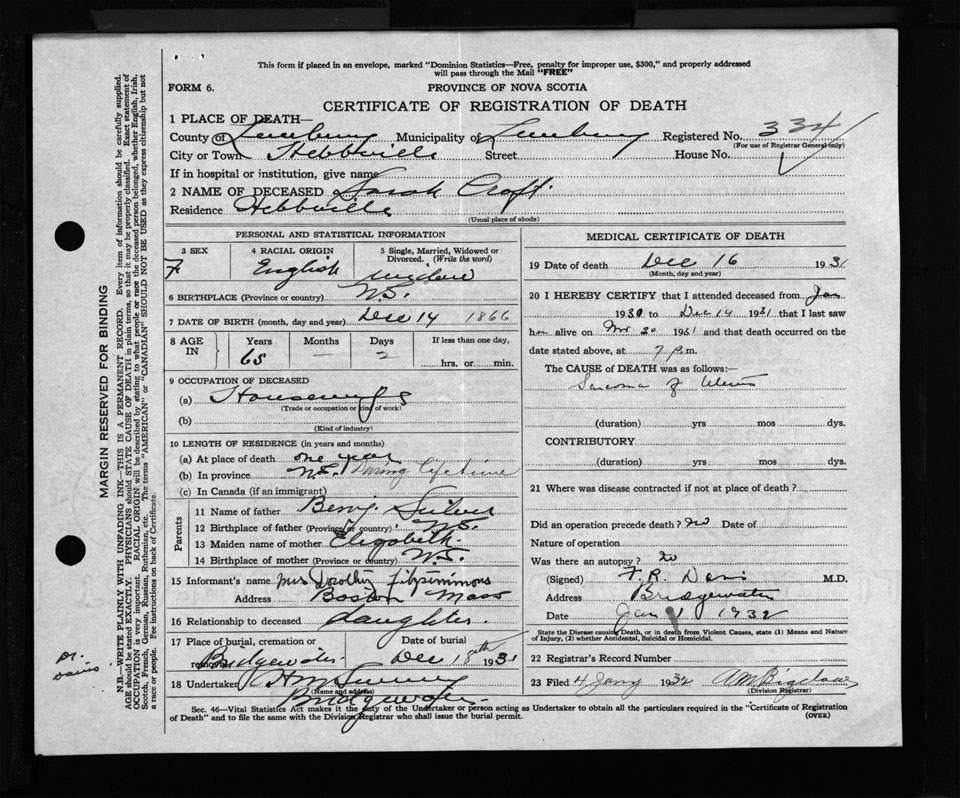 This form if placed in an envelope, marked "Dominion Statistics—Free, penalty for improper use, $300," and properly addressed
will pass through the Mail "FREE"
FORM 6.
PROVINCE OF NOVA SCOTIA
CERTIFICATE OF REGISTRATION OF DEATH
1 PLACE OF DEATH—
County of Lunenburg Municipality of Lunenburg Registered No. 334
(For use of Registrar General only)
City or Town Hebbville Street House No.
If in hospital or institution, give name
2 NAME OF DECEASED Sarah Croft.
Residence Hebbville
(Usual place of abode)
PERSONAL AND STATISTICAL INFORMATION
3 SEX 4 RACIAL ORIGIN 5 Single, Married, Widowed or
Divorced. (Write the word)
F English widow
6 BIRTHPLACE (Province or country) N.S.
7 DATE OF BIRTH (month, day and year) Dec 14 1866
8 AGE IN Years Months Days If less than one day,
65 — 2 hrs. or min.
9 OCCUPATION OF DECEASED
(a) Housewife
(Trade or occupation or kind of work)
(b)
(Kind of industry)
10 LENGTH OF RESIDENCE (in years and months)
(a) At place of death one year
(b) In province N.S. During lifetime
(c) In Canada (if an immigrant)
Parents
11 Name of father Benj. Silver
12 Birthplace of father (Province or country) N.S.
13 Maiden name of mother Elizabeth.
14 Birthplace of mother (Province or country) N.S.
15 Informant's name Mrs Dorothy Fitzsimmons
Address Boston Mass
16 Relationship to deceased daughter.
17 Place of burial, cremation or removal Date of burial
Bridgewater Dec 18th 1931
18 Undertaker
(Name and address)
Bridgewater
MEDICAL CERTIFICATE OF DEATH
19 Date of death Dec 16 1931
(Month, day and year)
20 I HEREBY CERTIFY that I attended deceased from Jan
1931 to Dec 14 1931 that I last saw
her alive on Nov 30 1931 and that death occurred on
date stated above, at 7 p.m.
The CAUSE of DEATH was as follows:—
Sarcoma of Uterus
(duration) yrs mos dys.
CONTRIBUTORY
(duration) yrs mos dys.
21 Where was disease contracted if not at place of death?
Did an operation precede death? no Date of
Nature of operation
Was there an autopsy? no
(Signed) F. R. Davis M.D.
Address Bridgewater
Date Jan 1 1932
State the Disease causing Death, or in death from Violent Causes, state (1) Means and Nature
of Injury, (2) whether Accidental, Suicidal or Homicidal.
22 Registrar's Record Number
23 Filed 4 Jany 1932 A M Bigelow
(Division Registrar)
Sec. 46—Vital Statistics Act makes it the duty of the Undertaker or person acting as Undertaker to obtain all the particulars required in the "Certificate of Registration
of Death" and to file the same with the Division Registrar who shall issue the burial permit.
(OVER)
MARGIN RESERVED FOR BINDING
N.B.—WRITE PLAINLY WITH UNFADING INK—THIS IS A PERMANENT RECORD. Every item of information should be carefully supplied.
AGE should be stated EXACTLY. PHYSICIANS should STATE CAUSE OF DEATH in plain terms, so that it may be properly classified. Exact statement of
OCCUPATION is very important. RACIAL ORIGIN will be described by stating to what people or race the deceased person belonged, whether English, Irish,
Scotch, French, German, Russian, Ruthenian, etc. The terms "AMERICAN" or "CANADIAN" SHOULD NOT BE USED as they express citizenship but not
a race or people. See instructions on back of Certificate.
Dr.
Davis